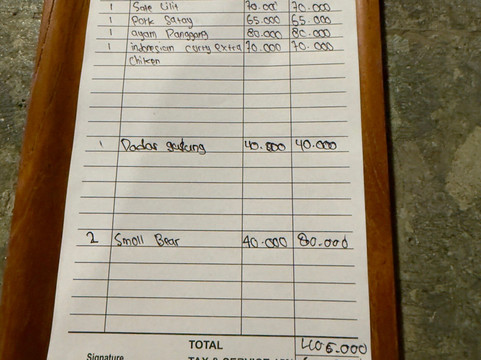 1 Sate Lilit 70.000 70.000
1 Pork Satay 65.000 65.000
1 ayam Panggang 80.000 80.000
1 indonesian curry extra 70.000 70.000
Chiken
1 Dadar gulung 40.000 40.000
2 Small Bear 40.000 80.000
TOTAL 405.000
Signature